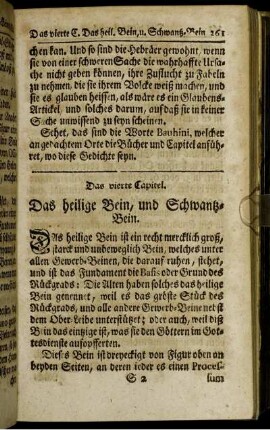 Das vierte C. Das heil. Bein, u. Schwantz-Bein 261
chen kan. Und so sind die Hebräer gewohnt, wenn
sie von einer schweren Sache die wahrhaffte Ursa-
che nicht geben können, ihre Zuflucht zu Fabeln
zu nehmen, die sie ihrem Volcke weiß machen, und
sie es glauben heissen, als wäre es ein Glaubens-
Artickel, und solches darum, auf daß sie in keiner
Sache unwissend zu seyn scheinen.
Sehet, das sind die Worte Bauhini, welcher
an gedachtem Orte die Bücher und Capitel anfüh-
ret, wo diese Gedichte seyn.
Das vierte Capitel.
Das heilige Bein, und Schwantz-
Bein.
DAs heilige Bein ist ein recht mercklich groß,
starck und unbeweglich Bein, welches unter
allen Gewerb-Beinen, die darauf ruhen, stehet,
und ist das Fundament die Baß- oder Grund des
Rückgrads: Die Alten haben solches das heilige
Bein genennet, weil es das gröste Stück des
Rückgrads, und alle andere Gewerb-Beine netst
dem Ober-Leibe unterstützet; oder auch, weil diß
Bein das eintzige ist, was sie den Göttern im Got-
tesdienste aufopfferten.
Dieses Bein ist dreyeckigt von Figur oben an
beyden Seiten, an deren jeder es einen Proces-
S 2 sum